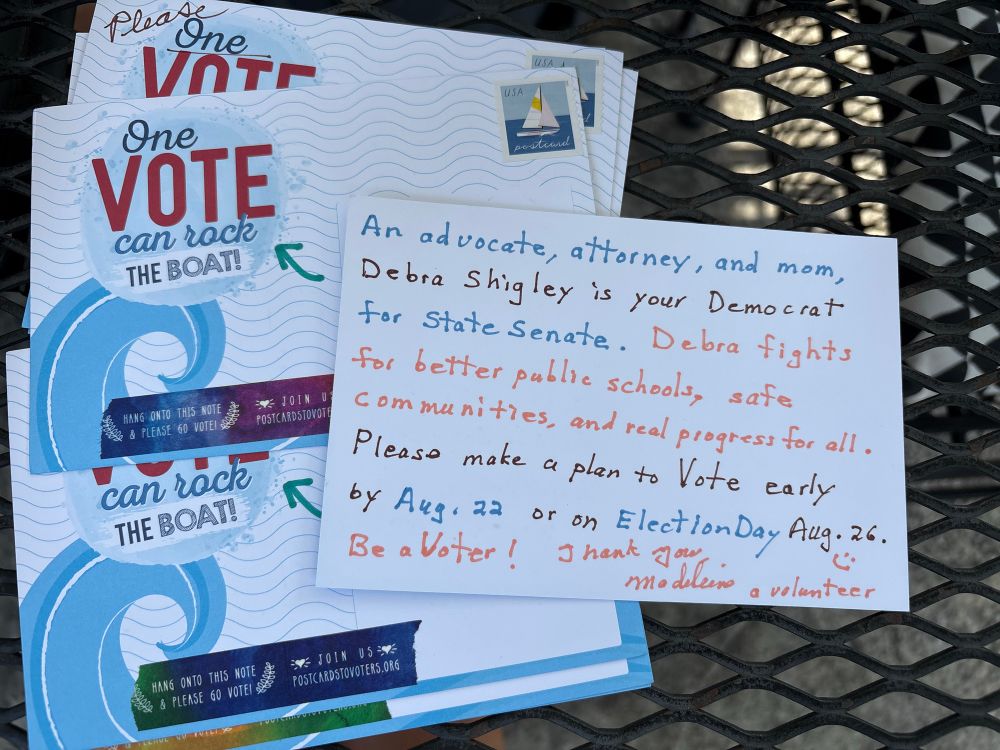 Please
One
VOTE
USA
USA
postcard
One
VOTE
can rock
THE BOAT!
HANG ONTO THIS NOTE
& PLEASE GO VOTE!
JOIN US
POSTCARDSTOVOTERS
VOTE
can rock
THE BOAT!
HANG ONTO THIS NOTE
& PLEASE GO VOTE!
JOIN US
POSTCARDSTOVOTERS.ORG
An advocate, attorney, and mom,
Debra Shigley is your Democrat
for State Senate. Debra fights
for better public schools, safe
communities, and real progress for all.
Please make a plan to Vote early
by Aug. 22 or on Election Day Aug. 26.
Be a Voter! Thank you,
Madeleine a volunteer